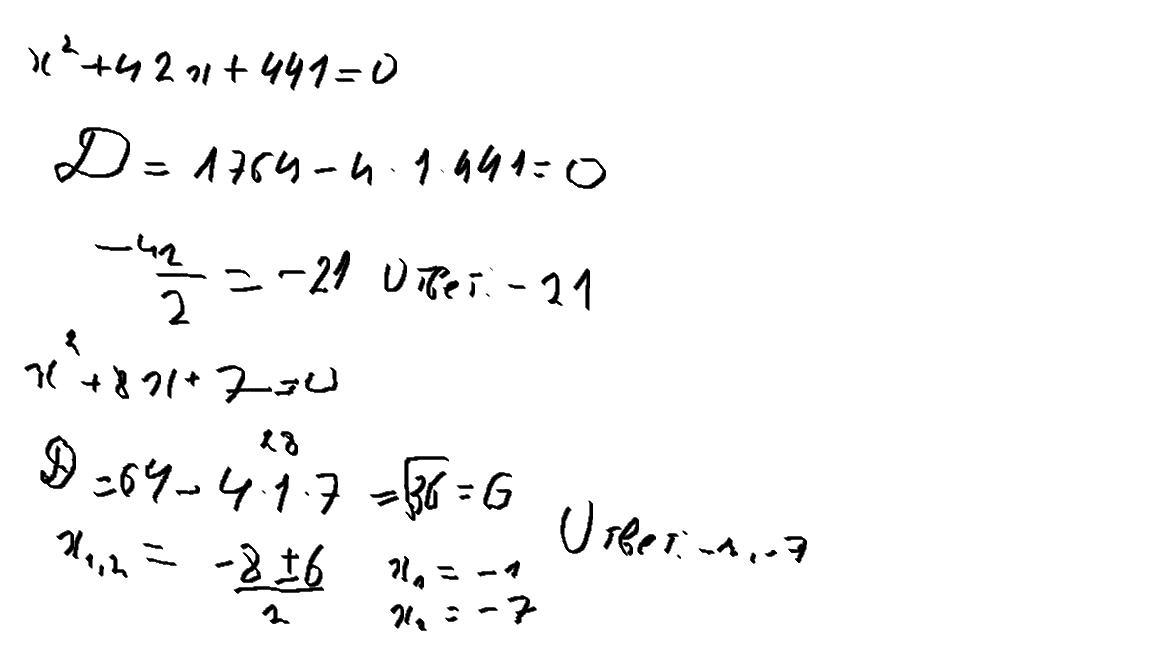 x²+42x+441=0
D = 1764-4·1·441=0
-42/2 = -21 Ответ: -21
x²+8x+7=0
28
D=64-4·1·7 =√36=6
x₁,₂ = (-8±6)/2 x₁ = -1 Ответ: -1, -7
x₂ = -7